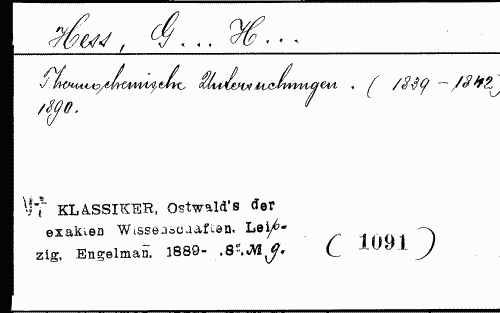 Hess, G... H...
Thermochemische Untersuchungen. (1839-1842)
1890.
KLASSIKER, Ostwald's der
exakten Wissenschaften. Leip-
zig, Engelman̄. 1889- .8º.M 9.
( 1091 )